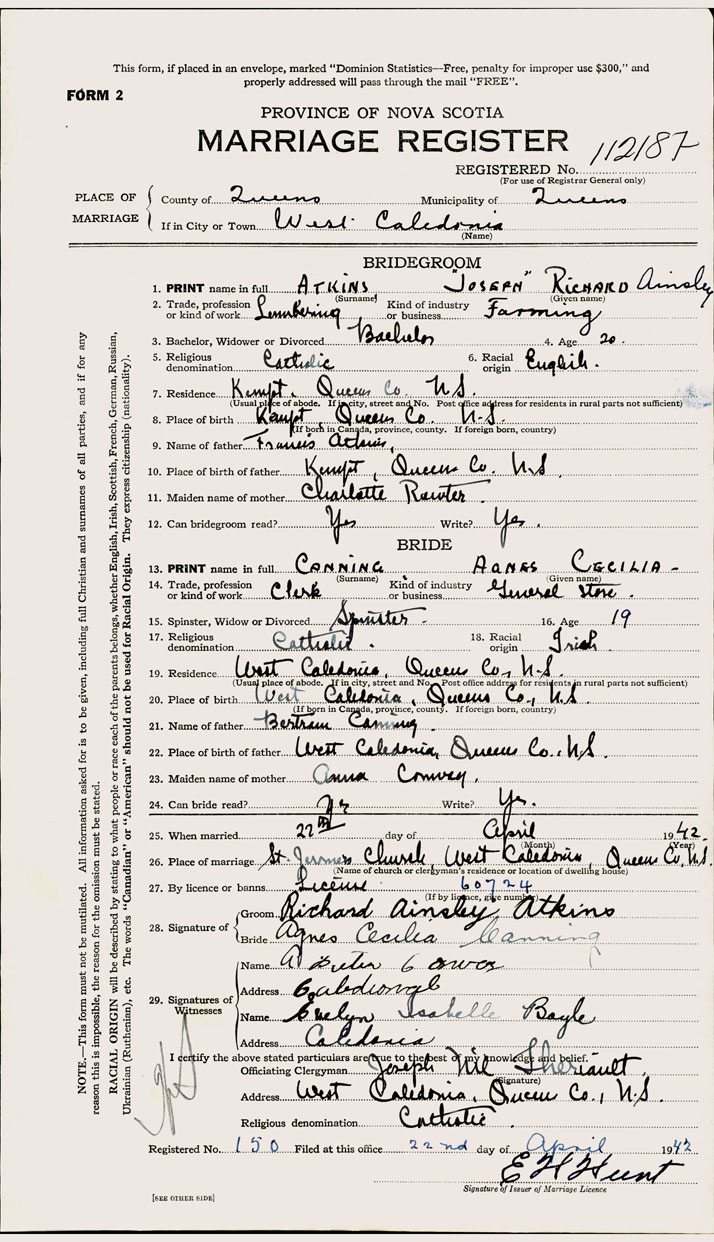 This form, if placed in an envelope, marked "Dominion Statistics—Free, penalty for improper use $300," and
properly addressed will pass through the mail "FREE".
FORM 2
PROVINCE OF NOVA SCOTIA
MARRIAGE REGISTER
REGISTERED No. 112187
(For use of Registrar General only)
PLACE OF MARRIAGE
County of Queens Municipality of Queens
If in City or Town West Caledonia
(Name)
BRIDEGROOM
1. PRINT name in full ATKINS "JOSEPH" RICHARD Ainsley
(Surname) (Given name)
2. Trade, profession or kind of work Lumbering Kind of industry or business Farming
3. Bachelor, Widower or Divorced Bachelor 4. Age 20.
5. Religious denomination Catholic 6. Racial origin English.
7. Residence Kempt, Queens Co. N.S.
(Usual place of abode. If in city, street and No. Post office address for residents in rural parts not sufficient)
8. Place of birth Kempt, Queens Co. N.S.
(If born in Canada, province, county. If foreign born, country)
9. Name of father Francis Atkins,
10. Place of birth of father Kempt, Queens Co. N.S.
11. Maiden name of mother Charlotte
12. Can bridegroom read? Yes Write? Yes.
BRIDE
13. PRINT name in full CANNING AGNES CECILIA -
(Surname) (Given name)
14. Trade, profession or kind of work Clerk Kind of industry or business General store.
15. Spinster, Widow or Divorced Spinster. 16. Age 19
17. Religious denomination Catholic. 18. Racial origin Irish.
19. Residence West Caledonia, Queens Co., N.S.
(Usual place of abode. If in city, street and No. Post office address for residents in rural parts not sufficient)
20. Place of birth West Caledonia, Queens Co., N.S.
(If born in Canada, province, county. If foreign born, country)
21. Name of father Bertram Canning.
22. Place of birth of father West Caledonia, Queens Co., N.S.
23. Maiden name of mother Anna Conway.
24. Can bride read? Yes Write? Yes.
25. When married 22nd day of April 1942.
(Month) (Year)
26. Place of marriage St. Jeromes Church, West Caledonia, Queens Co, N.S.
(Name of church or clergyman's residence or location of dwelling house)
27. By licence or banns License 60724
(If by licence, give number)
28. Signature of
Groom Richard Ainsley Atkins
Bride Agnes Cecilia Canning
29. Signatures of Witnesses
Name
Address
Name Evelyn Isabelle Boyle
Address Caledonia
I certify the above stated particulars are true to the best of my knowledge and belief.
Officiating Clergyman Joseph Nil Theriault.
(Signature)
Address West Caledonia, Queens Co., N.S.
Religious denomination Catholic.
Registered No. 150 Filed at this office 22nd day of April 1942
E H Hunt
Signature of Issuer of Marriage Licence
[SEE OTHER SIDE]
NOTE.—This form must not be mutilated. All information asked for is to be given, including full Christian and surnames of all parties, and if for any
reason this is impossible, the reason for the omission must be stated.
RACIAL ORIGIN will be described by stating to what people or race each of the parents belongs, whether English, Irish, Scottish, French, German, Russian,
Ukrainian (Ruthenian), etc. The words "Canadian" or "American" should not be used for Racial Origin. They express citizenship (nationality).